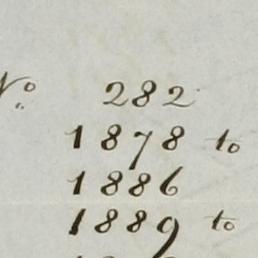 No. 282
1878 to
1886
1889 to